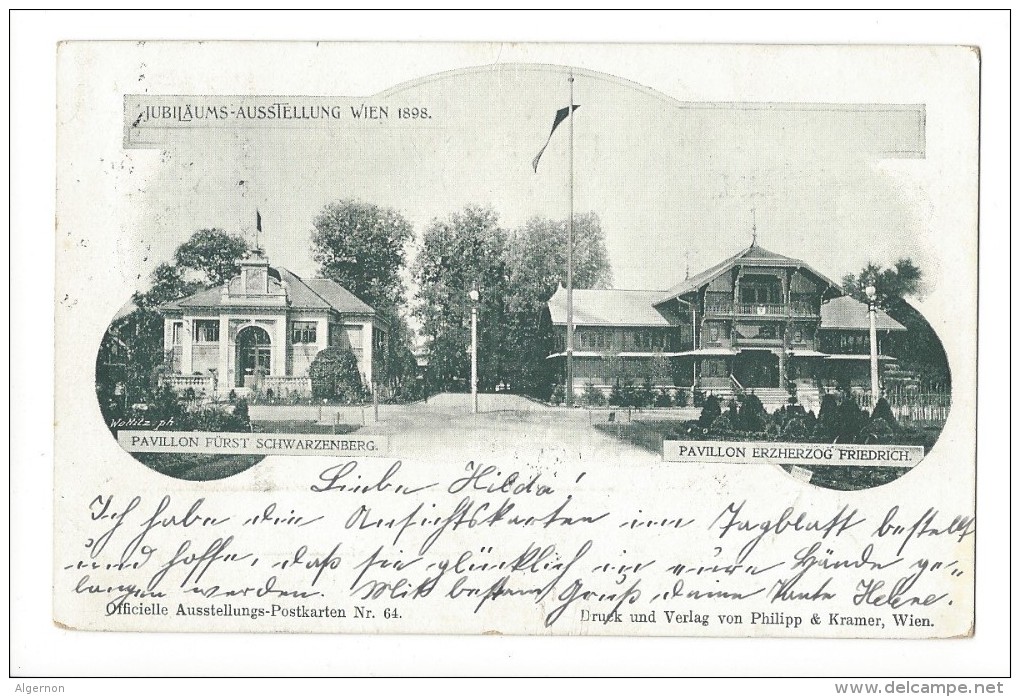 JUBILÄUMS-AUSSTELLUNG WIEN 1898.
Wottitz ph
PAVILLON FÜRST SCHWARZENBERG.
PAVILLON ERZHERZOG FRIEDRICH.
Liebe Hilda!
Ich habe die Ansichtskarten im Tagblatt bestellt
und hoffe, daß sie glücklich in eure Hände ge=
langen werden. Mit bestem Gruß deine Tante Helene.
Officielle Ausstellungs-Postkarten Nr. 64.
Druck und Verlag von Philipp & Kramer, Wien.
Algernon
www.delcampe.net